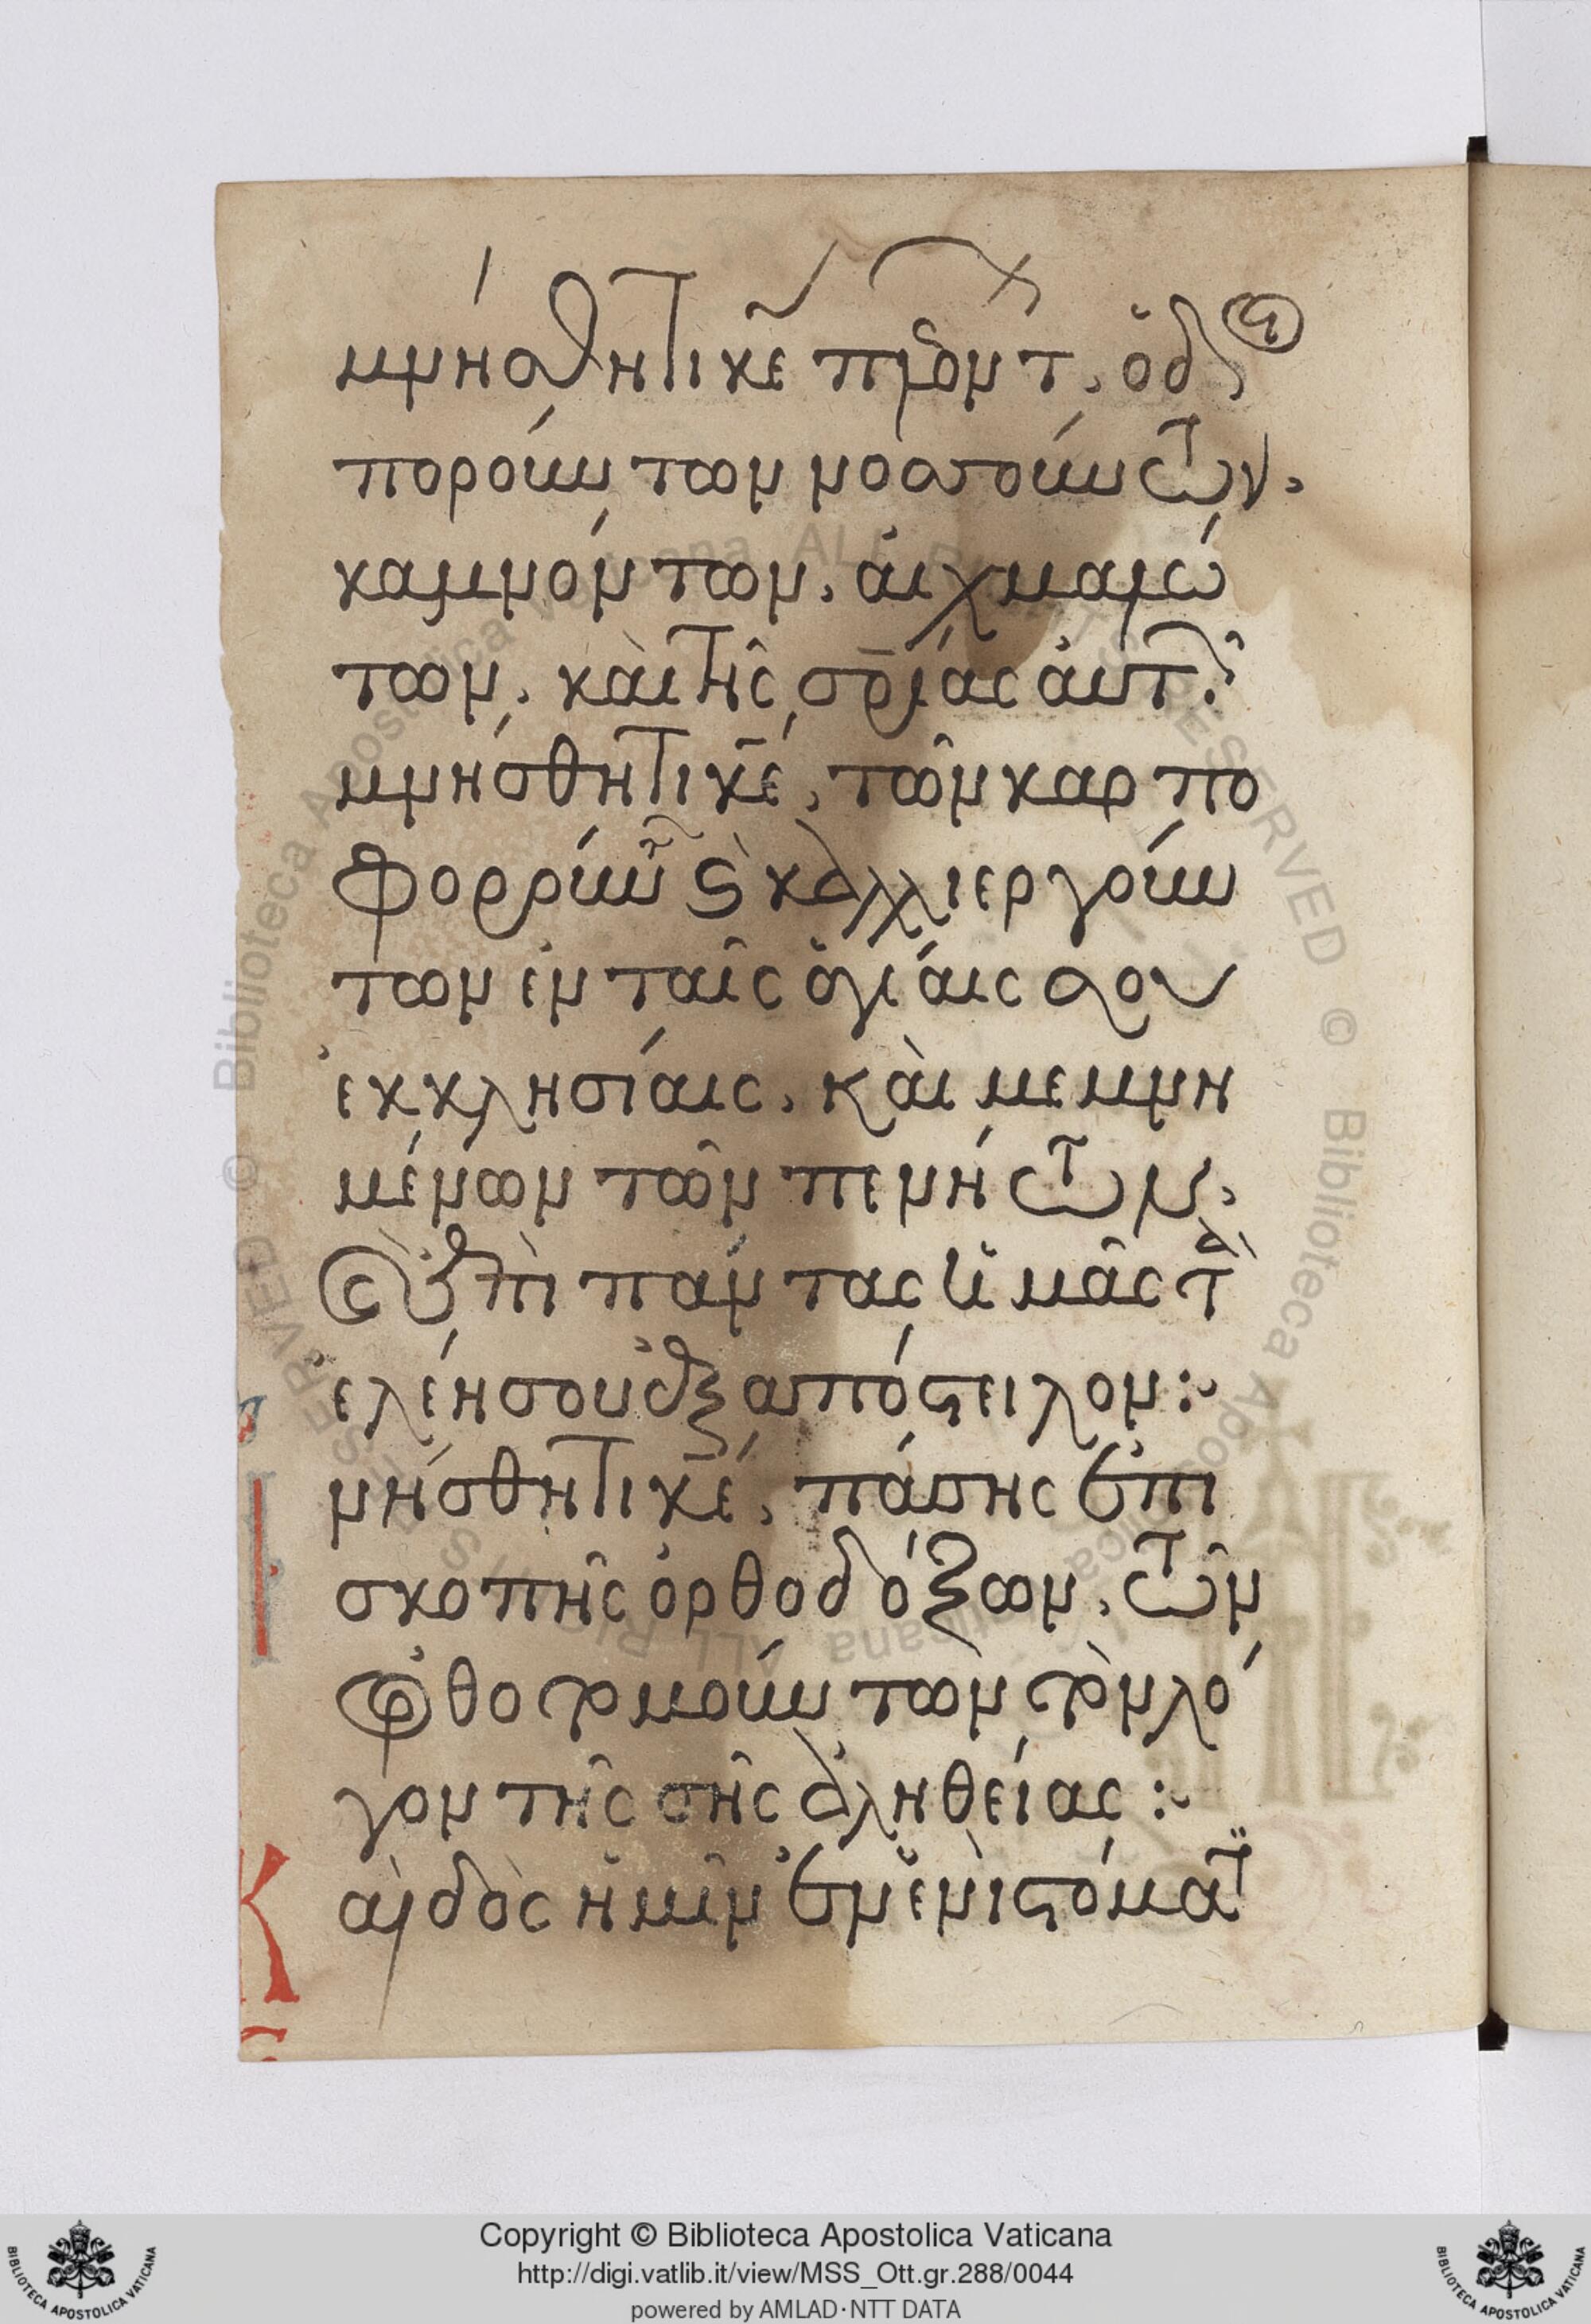 μνήσθητι κε πλεοντ, ὁδοι
πορούντων νοσούντων,
καμνόντων, αἰχμαλώ
των, καὶ τῆς σρίας αὐτῶν·
μνήσθητι κε, τῶν καρπο
φορούντων ς καλλιεργούν
των ἐν ταῖς ἁγίαις σου
ἐκκλησίαις, καὶ μεμνη
μένων τῶν πενήτων,
καὶ ἐπὶ πάντας ἡμᾶς τὰ
ἐλέη σου ἐξαπόστειλον:
μνήσθητι κε, πάσης ἐπι
σκοπῆς ὀρθοδόξων, τῶν
ὀρθοτομούντων τὸν λό
γον τῆς σῆς ἀληθείας:
αὶ δὸς ἡμῖν ἐν ἑνὶ στόματι
Copyright © Biblioteca Apostolica Vaticana
http://digi.vatlib.it/view/MSS_Ott.gr.288/0044
powered by AMLAD·NTT DATA